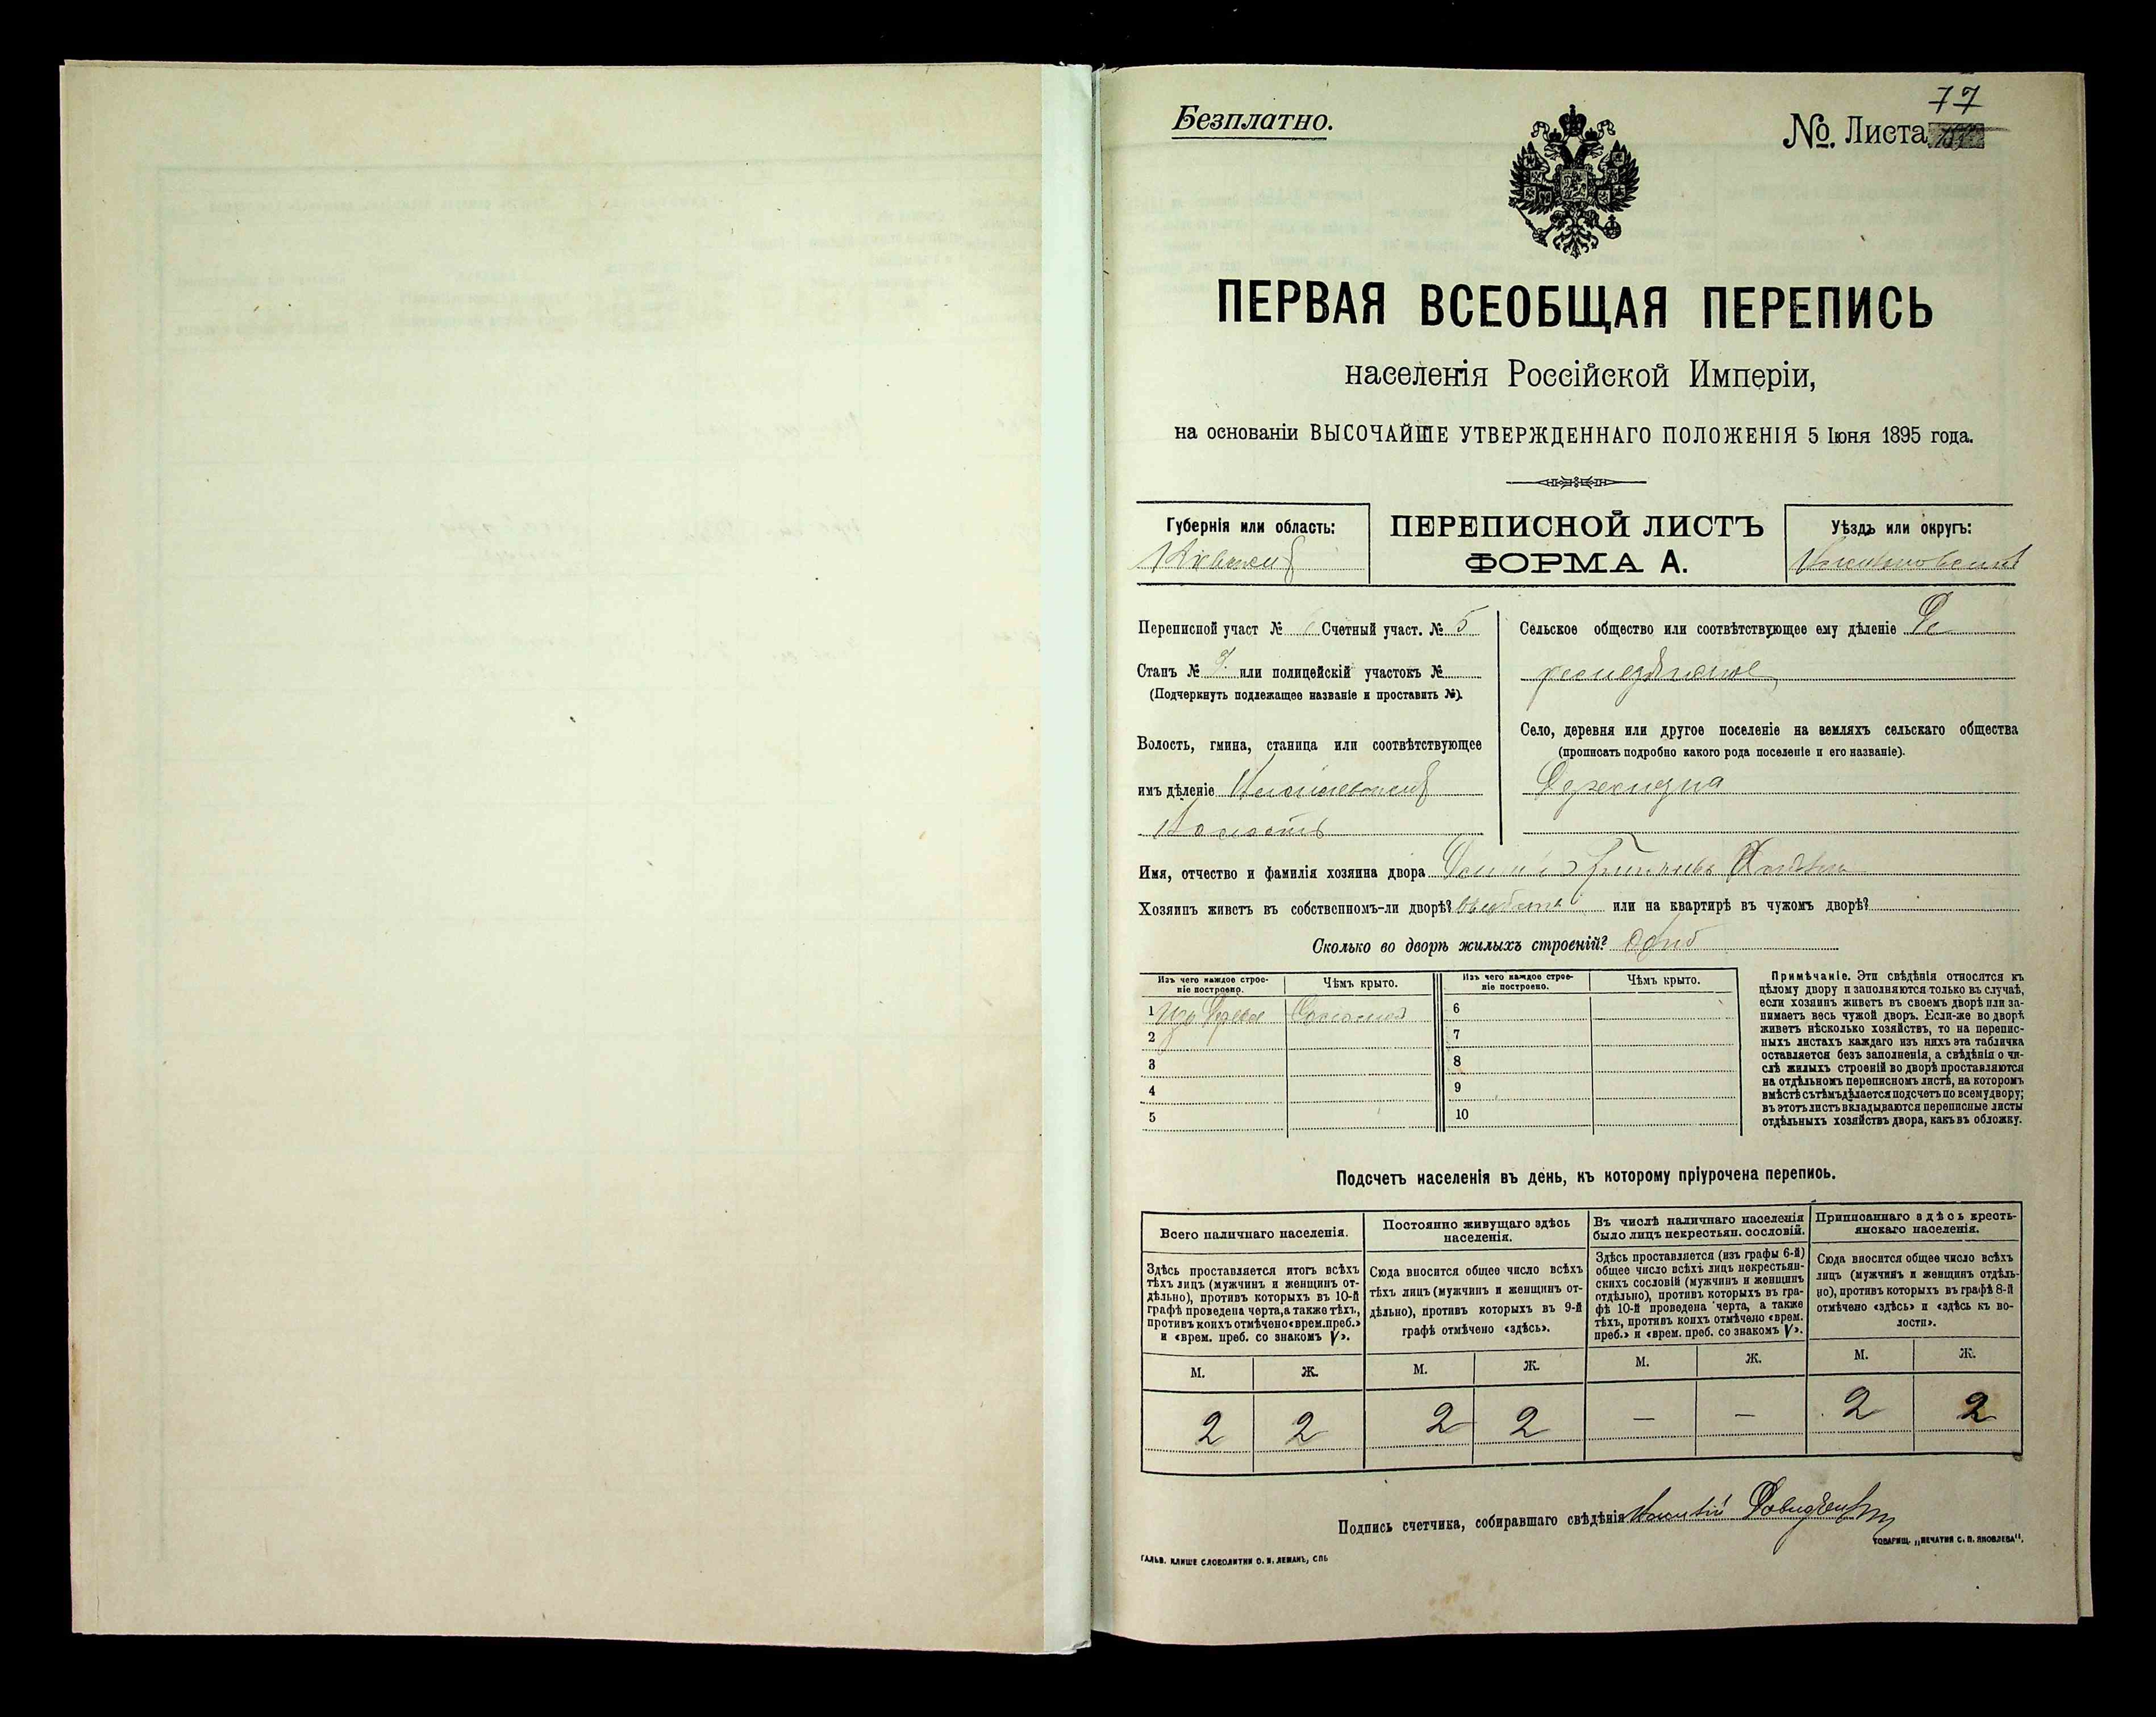 77
Безплатно.
№. Листа
ПЕРВАЯ ВСЕОБЩАЯ ПЕРЕПИСЬ
населенія Россійской Имперіи,
на основаніи ВЫСОЧАЙШЕ УТВЕРЖДЕННАГО ПОЛОЖЕНІЯ 5 Іюня 1895 года.
Губернія или область:
Кіевская
ПЕРЕПИСНОЙ ЛИСТЪ
ФОРМА А.
Уѣздъ или округъ:
Переписной участ № Счетный участ. № 5
Станъ № или полицейскій участокъ №
(Подчеркнуть подлежащее названіе и проставить №).
Волость, гмина, станица или соотвѣтствующее
имъ дѣленіе
Волость
Сельское общество или соотвѣтствующее ему дѣленіе
Село, деревня или другое поселеніе на земляхъ сельскаго общества
(прописать подробно какого рода поселеніе и его названіе).
Имя, отчество и фамилія хозяина двора
Хозяинъ живетъ въ собственномъ-ли дворѣ? или на квартирѣ въ чужомъ дворѣ?
Сколько во дворѣ жилыхъ строеній?
Изъ чего каждое строе-
ніе построено.
Чѣмъ крыто.
Изъ чего каждое строе-
ніе построено.
Чѣмъ крыто.
1 Изъ Дерева Соломой
2
3
4
5
6
7
8
9
10
Примѣчаніе. Эти свѣдѣнія относятся къ
цѣлому двору и заполняются только въ случаѣ,
если хозяинъ живетъ въ своемъ дворѣ или за-
нимаетъ весь чужой дворъ. Если-же во дворѣ
живетъ нѣсколько хозяйствъ, то на перепис-
ныхъ листахъ каждаго изъ нихъ эта табличка
оставляется безъ заполненія, а свѣдѣнія о чи-
слѣ жилыхъ строеній во дворѣ проставляются
на отдѣльномъ переписномъ листѣ, на которомъ
вмѣстѣ съ тѣмъ дѣлается подсчетъ по всему двору;
въ этотъ листъ вкладываются переписные листы
отдѣльныхъ хозяйствъ двора, какъ въ обложку.
Подсчетъ населенія въ день, къ которому пріурочена перепись.
Всего наличнаго населенія.
Здѣсь проставляется итогъ всѣхъ
тѣхъ лицъ (мужчинъ и женщинъ от-
дѣльно), противъ которыхъ въ 10-й
графѣ проведена черта, а также тѣхъ,
противъ коихъ отмѣчено «врем. преб.»
и «врем. преб. со знакомъ V».
М. Ж.
2 2
Постоянно живущаго здѣсь
населенія.
Сюда вносится общее число всѣхъ
тѣхъ лицъ (мужчинъ и женщинъ от-
дѣльно), противъ которыхъ въ 9-й
графѣ отмѣчено «здѣсь».
М. Ж.
2 2
Въ числѣ наличнаго населенія
было лицъ некрестьян. сословій.
Здѣсь проставляется (изъ графы 6-й)
общее число всѣхъ лицъ некрестьян-
скихъ сословій (мужчинъ и женщинъ
отдѣльно), противъ которыхъ въ гра-
фѣ 10-й проведена черта, а также
тѣхъ, противъ коихъ отмѣчено «врем.
преб.» и «врем. преб. со знакомъ V».
М. Ж.
— —
Приписаннаго здѣсь кресть-
янскаго населенія.
Сюда вносится общее число всѣхъ
лицъ (мужчинъ и женщинъ отдѣль-
но), противъ которыхъ въ графѣ 8-й
отмѣчено «здѣсь» и «здѣсь къ во-
лости».
М. Ж.
2 2
Подпись счетчика, собиравшаго свѣдѣнія
ГАЛЬВ. КЛИШЕ СЛОВОЛИТНИ О. И. ЛЕМАНЪ, СПБ
ТОВАРИЩ. „ПЕЧАТНЯ С. П. ЯКОВЛЕВА“.